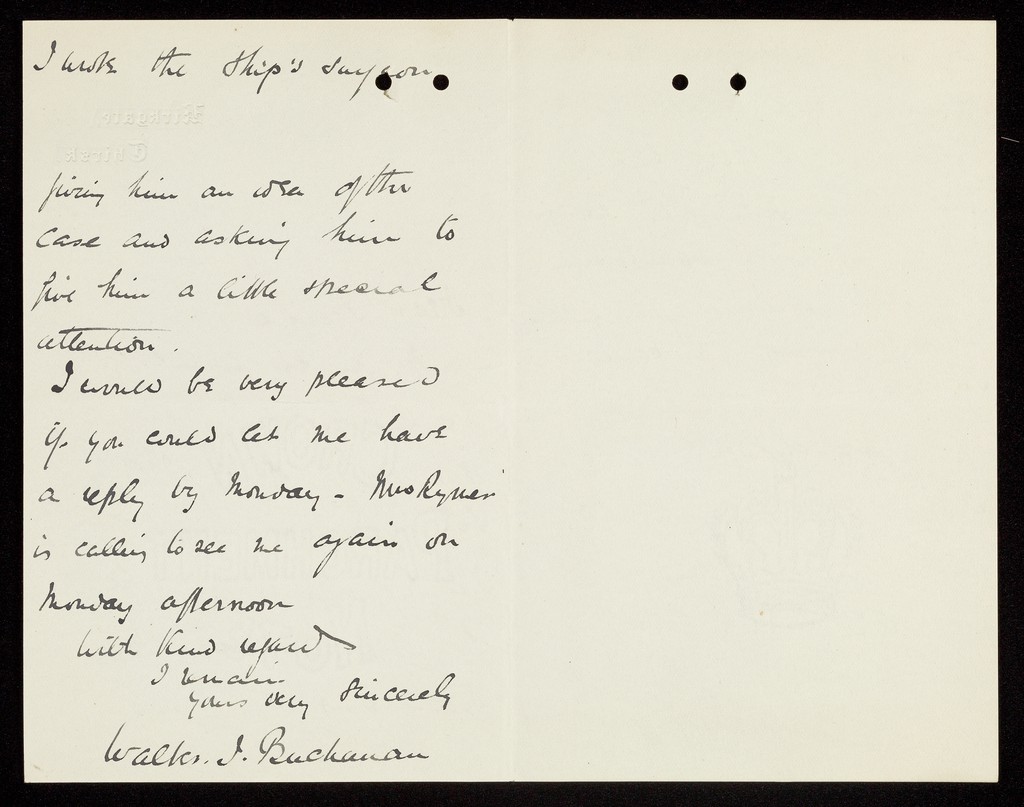 I wrote the ship's surgeon
Kirkgate,
Thirsk
giving him an idea of the
case and asking him to
give him a little special
attention.
I would be very pleased
if you could let me have
a reply by Monday - Mrs Rymer
is calling to see me again on
Monday afternoon
With kind regards
I remain
yours very sincerely
Walter. J. Buchanan